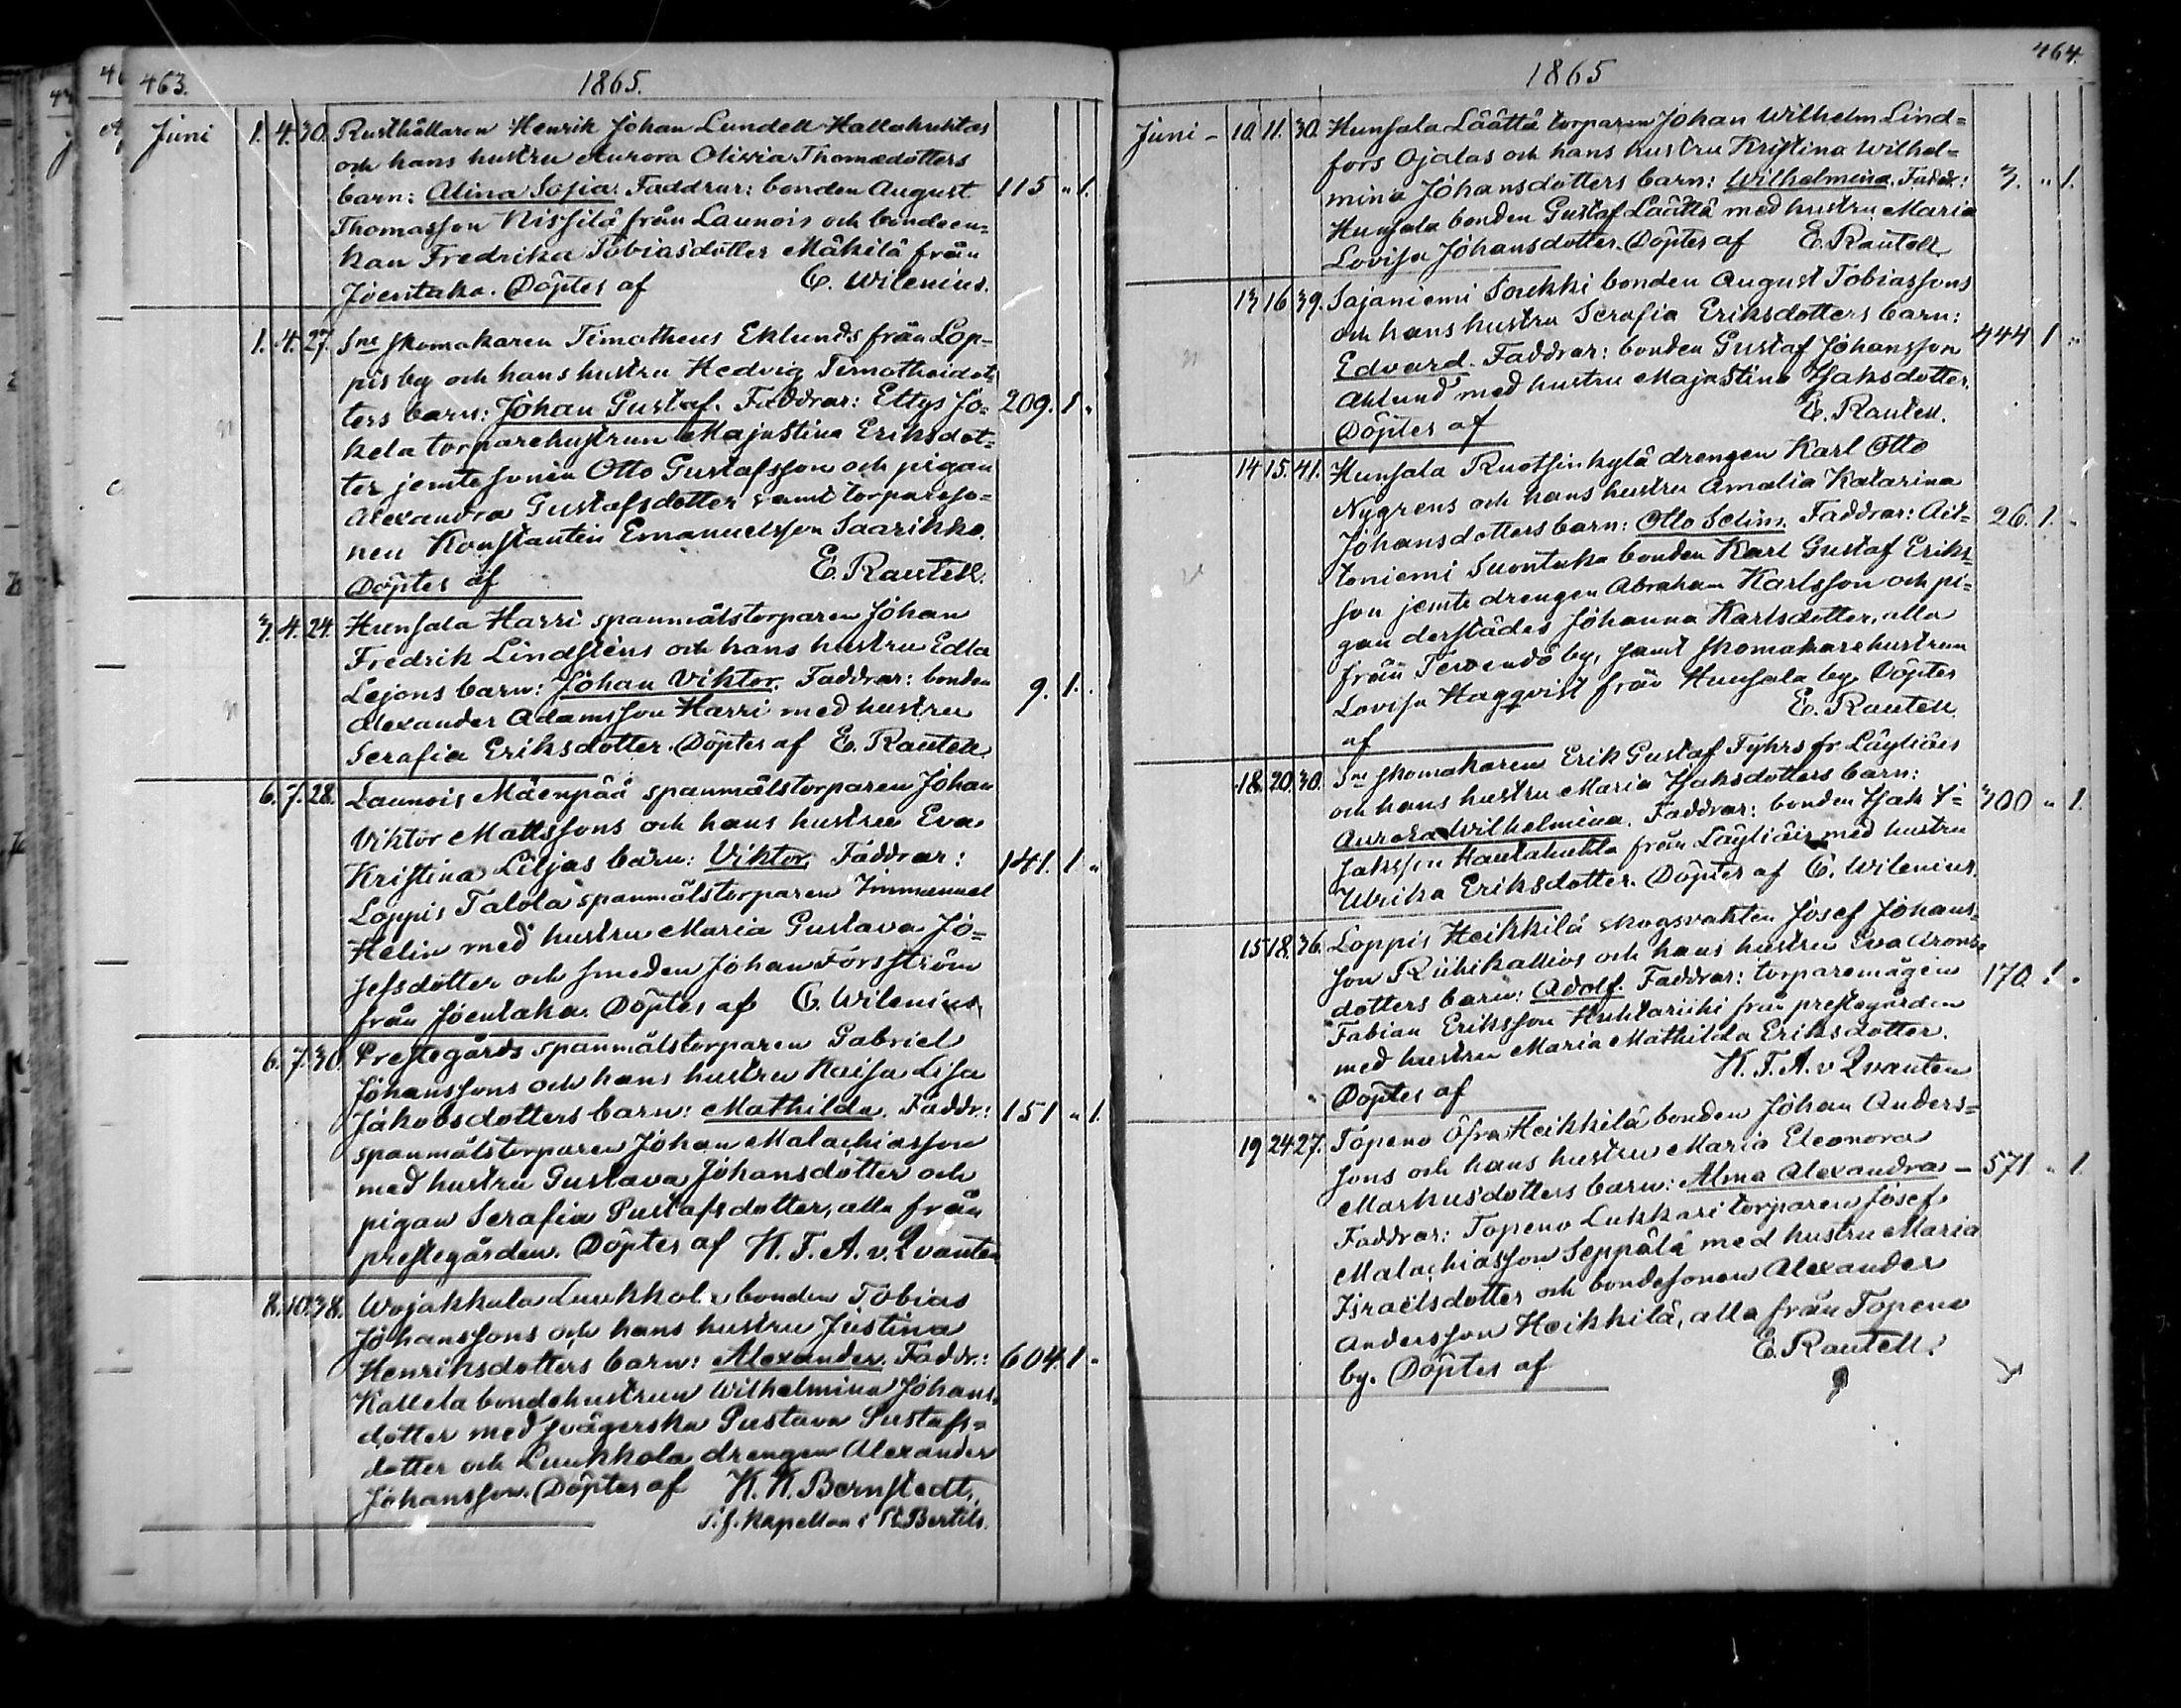 463.
1865.
Juni 1. 4. 30. Rusthållaren Henrik Johan Lundell Hallakuktas
och hans hustru Aurora Olivia Thomædotters
barn: Alina Sofia. Faddrar: bonden August 115 " 1.
Thomasson Nissilä från Launois och bondeen-
kan Fredrika Tobiasdotter Mäkilä från
Joentaka. Döptes af C. Wilenius.
1. 4. 27. Sne skomakaren Timotheus Eklunds från Lop-
pis by och hans hustru Hedvig Timotheidot-
ters barn: Johan Gustaf. Faddrar: Ettys Jo- 209. 1 "
kela torparehustrun Majastina Eriksdot-
ter jemte sonen Otto Gustafsson och pigan
Alexandra Gustafsdotter samt torpareso-
nen Konstantin Emanuelsson Saarikko.
Döptes af E. Rautell.
3. 4. 24. Hunsala Harri spanmålstorparen Johan
Fredrik Lindsténs och hans hustru Edla
Lejons barn: Johan Viktor. Faddrar: bonden 9. 1. "
Alexander Adamsson Harri med hustru
Serafia Eriksdotter. Döptes af E. Rautell
6. 7. 28. Launois Mäenpää spanmålstorparen Johan
Viktor Mattssons och hans hustru Eva
Kristina Liljas barn: Viktor. Faddrar: 141. 1 "
Loppis Talola spanmålstorparen Immanuel
Helin med hustru Maria Gustava Jo-
sefsdotter och smeden Johan Forsström
från Joentaka. Döptes af C. Wilenius
6. 7. 30. Prestegårds spanmålstorparen Gabriel
Johanssons och hans hustru Kaisa Lisa
Jakobsdotters barn: Mathilda. Faddr.: 151 " 1.
spanmålstorparen Johan Malachiasson
med hustru Gustava Johansdotter och
pigan Serafia Gustafsdotter, alla från
prestegården. Döptes af K. F. A. v. Qvanten
8. 10. 38. Wojakkala Luukkola bonden Tobias
Johanssons och hans hustru Justina
Henriksdotters barn: Alexander. Faddr.: 604. 1 "
Kallela bondehustrun Wilhelmina Johans-
dotter med svägerska Gustava Gustafs-
dotter och Luukkola drengen Alexander
Johansson. Döptes af K. K. Bernstedt,
T. f. kapellan i St Bertils.
464.
1865
Juni - 10. 11. 30. Hunsala Läättä torparen Johan Wilhelm Lind-
fors Ojalas och hans hustru Kristina Wilhel-
mina Johansdotters barn: Wilhelmina. Faddr.: 3. " 1.
Hunsala bonden Gustaf Läättä med hustru Maria
Lovisa Johansdotter. Döptes af E. Rautell
13 16 39. Sajaniemi Soukki bonden August Tobiassons
och hans hustru Serafia Eriksdotters barn:
Edvard. Faddrar: bonden Gustaf Johansson 444 1 "
Ahlund med hustru Majastina Isaksdotter.
Döptes af E. Rautell.
14 15. 41. Hunsala Ruotsinkylä drengen Karl Otto
Nygrens och hans hustru Amalia Katarina
Johansdotters barn: Otto Selim. Faddrar: 26. 1. "
toniemi Suontaka bonden Karl Gustaf Eriks-
son jemte drengen Abraham Karlsson och pi-
gan derstädes Johanna Karlsdotter, alla
från Tervendö by, samt skomakarehustrun
Lovisa Hagqvist från Hunsala by. Döptes
af E. Rautell
18. 20. 30. Sne skomakaren Erik Gustaf Fyhrs fr. Läyliäis
och hans hustru Maria Isaksdotters barn:
Aurora Wilhelmina. Faddrar: bonden Isak I- 300 " 1.
saksson Hautakulta från Läyliäis med hustru
Ulrika Eriksdotter. Döptes af C. Wilenius.
15 18. 36. Loppis Heikkilä skogsvakten Josef Johans-
son Riihikallios och hans hustru Eva Arons-
dotters barn: Adolf. Faddrar: torparemågen 170. 1. "
Fabian Eriksson Huhtariihi från prestegården
med hustru Maria Mathilda Eriksdotter.
Döptes af K. F. A. v Qvanten
19 24. 27. Topeno Öfra Heikkilä bonden Johan Anders-
sons och hans hustru Maria Eleonora
Markusdotters barn: Alma Alexandra - 571. " 1.
Faddrar: Topeno Lukkari torparen Josef
Malachiasson Seppälä med hustru Maria
Israëlsdotter och bondesonen Alexander
Andersson Heikkilä, alla från Topeno
by. Döptes af E. Rautell.